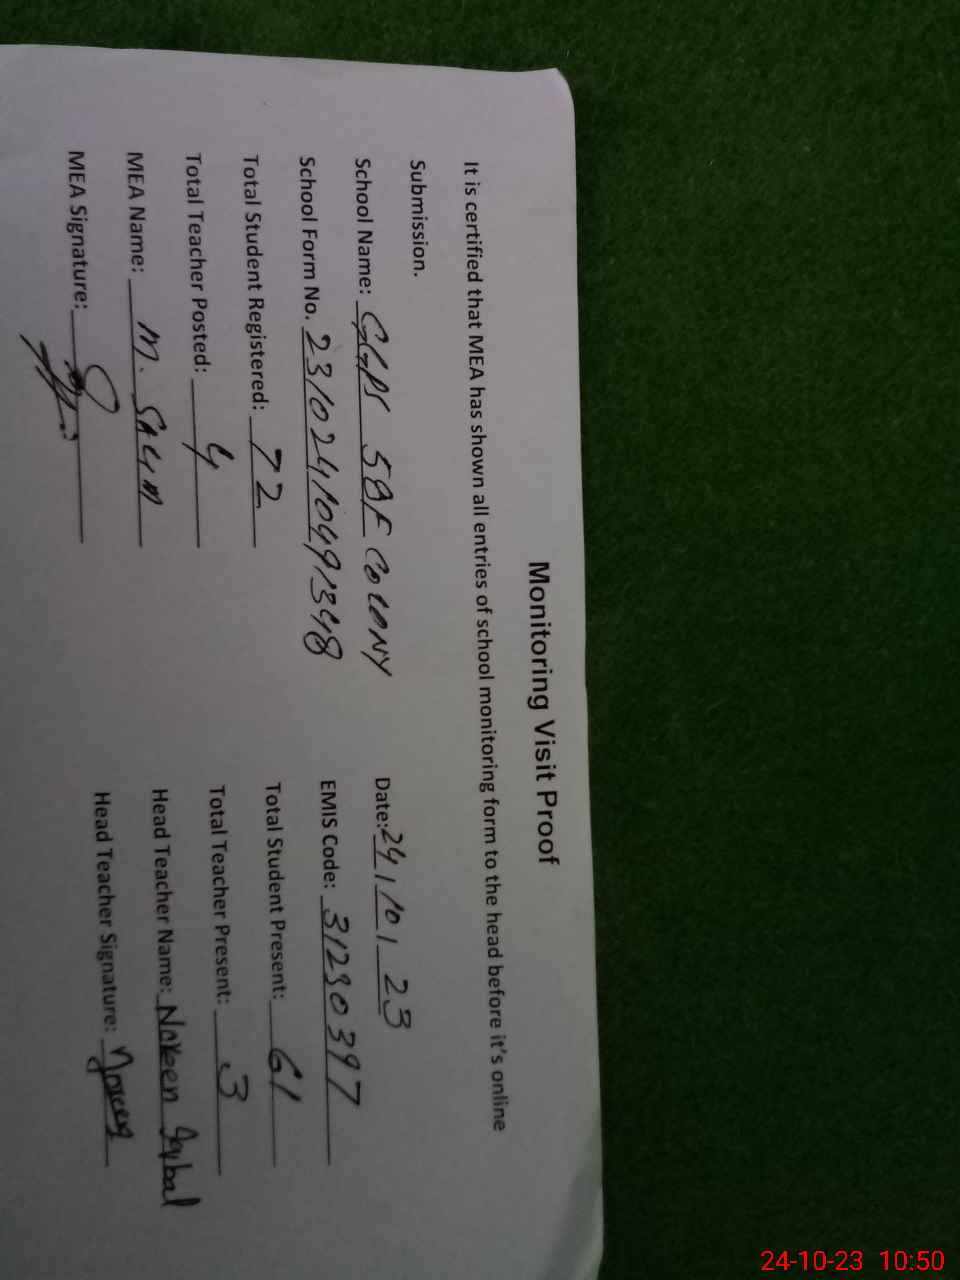 Monitoring Visit Proof
It is certified that MEA has shown all entries of school monitoring form to the head before it's online
Submission.
School Name: GGPS 58F COLONY Date: 24/10/23
School Form No. 23102410491348 EMIS Code: 31230397
Total Student Registered: 72 Total Student Present: 61
Total Teacher Posted: 4 Total Teacher Present: 3
MEA Name: M. SALIM Head Teacher Name: Noreen Iqbal
MEA Signature: Head Teacher Signature: Noreen
24-10-23 10:50